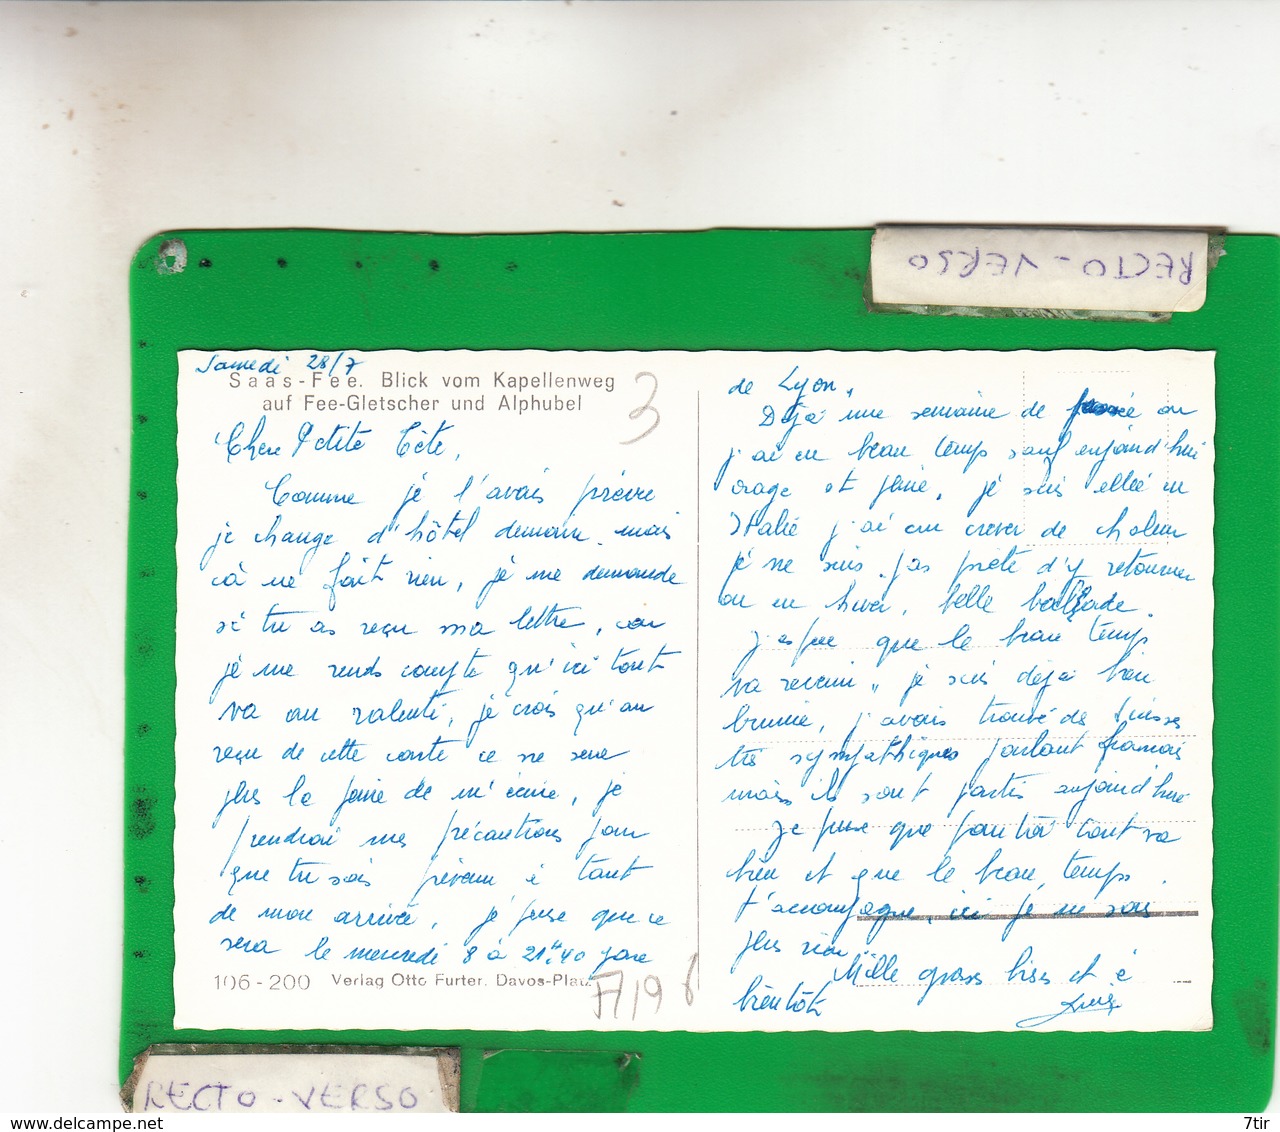 RECTO-VERSO
Samedi 28/7
Saas-Fee. Blick vom Kapellenweg
auf Fee-Gletscher und Alphubel
3
Chère Petite Tête,
Comme je t'avais prévue
je change d'hôtel demain, mais
cà ne fait rien, je me demande
si tu as reçu ma lettre, car
je me rends compte qu'ici tout
va au ralenti, je crois qu'au
reçu de cette carte ce ne sera
plus la peine de m'écrire, je
prendrai mes précautions pour
que tu sois prévenu à tant
de mon arrivée, je pense que ce
sera le mercredi 8 à 21h40 gare
106-200 Verlag Otto Furter, Davos-Platz
de Lyon.
Déjà une semaine de passée ou
j'ai eu beau temps sauf aujourd'hui
orage et pluie, je suis allée en
Italie j'ai cru crever de chaleur
je ne suis pas prête d'y retourner
ou en hiver, belle ballade.
J'espère que le beau temps
va revenir, je suis déjà bien
brunie, j'avais trouvé des Suisses
très sympathiques parlant français
mais ils sont partis aujourd'hui
Je pense que pour toi tout va
bien et que le beau temps
t'accompagne, ici je ne sais
plus rien.
Mille gross biss et à
bientôt
RECTO-VERSO
7tir
www.delcampe.net